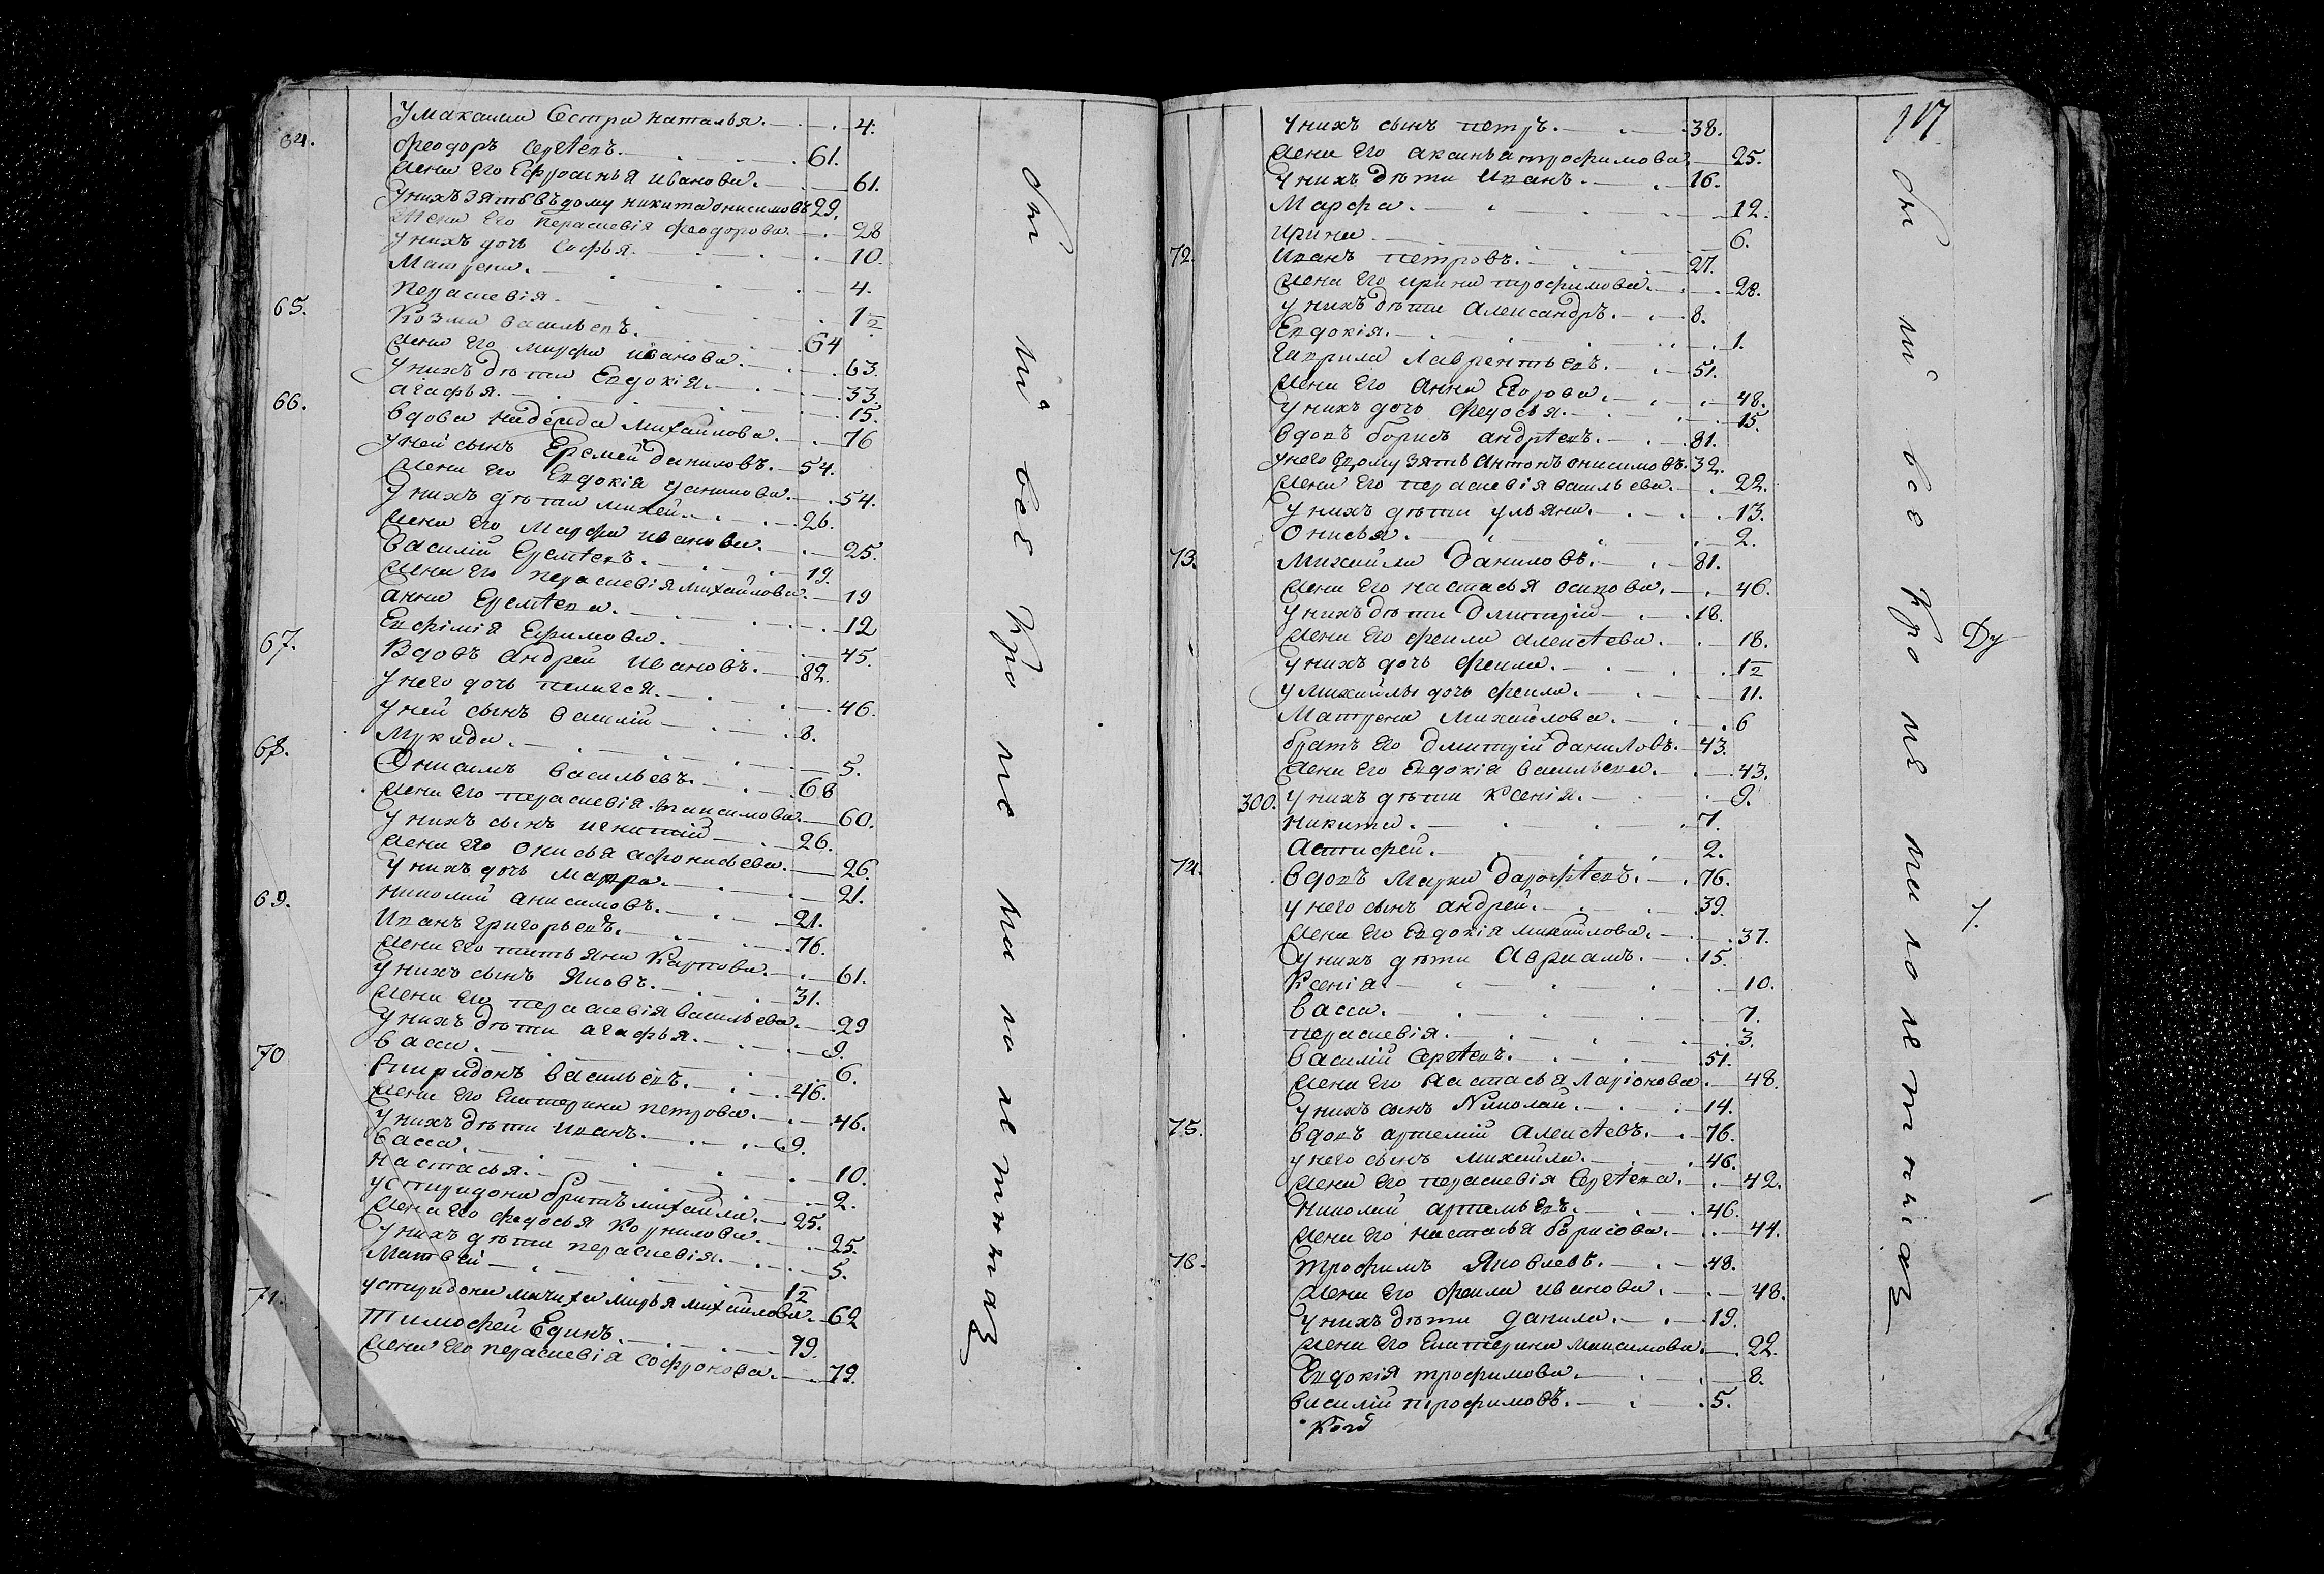 у максима Сестра наталья. 4.
64. феодоръ сергѣевъ. 61.
жена его Ефросинья иванова. 61.
у нихъ зять въ дому никита онисимовъ 29.
жена его Параскевія феодорова. 28
у нихъ дочь Софья. 10.
Матрена. 4.
Параскевія. 1/2
65. Козма васильевъ. 64
жена его марфа иванова. 63.
у нихъ дѣти Евдокія. 33.
агафья. 15.
66. вдова надежда михайлова. 76
у ней сынъ Еремей даниловъ. 54.
жена его Евдокія данилова. 54.
у нихъ дѣти михей. 26.
жена его Марфа иванова. 25.
василій Еремѣевъ. 19.
жена его параскевія михайлова. 19
анна Еремѣева. 12
Евфимія Ефимова. 45.
67. Вдовъ андрей ивановъ. 82.
у него дочь пелагея. 46.
у ней сынъ василій 8.
Мукида. 5.
68. Онисимъ васильевъ. 66
жена его параскевія максимова. 60.
у нихъ сынъ игнатій 26.
жена его онисья афонасьева. 26.
у нихъ дочь мавра. 21.
николай анисимовъ. 21.
69. Иванъ григорьевъ. 76.
жена его татьяна Карпова. 61.
у нихъ сынъ Яковъ. 31.
жена его параскевія васильева. 29
у нихъ дѣти агафья. 9.
васса. 6.
70 спиридонъ васильевъ. 46.
жена его Екатерина петрова. 46.
у нихъ дѣти иванъ. 9.
васса. 10.
настасья. 2.
у спиридона братъ михайла. 25.
жена его федосья Корнилова. 25.
у нихъ дѣти параскевія. 5.
Матвей 1/2
у спиридона мачиха марья михайлова. 62
71. Тимофей Единъ. 79.
жена его параскевія софронова. 79.
онѣ всѣ кроме малолетныхъ
117
у нихъ сынъ петръ. 38.
жена его аксинья трофимова. 25.
у нихъ дѣти иванъ. 16.
Марфа. 12.
ирина 6.
72. иванъ петровъ. 27.
жена его ирина трофимова. 28.
у нихъ дѣти александръ. 8.
Евдокія. 1.
гаврила лаврентьевъ. 51.
жена его анна Егорова. 48.
у нихъ дочь федосья. 15.
вдовъ борисъ андрѣевъ. 81.
у него в дому зять антонъ онисимовъ. 32.
жена его параскевія васильева. 22.
у нихъ дѣти ульяна. 13.
Онисья. 2.
73. михайла даниловъ. 81.
жена его настасья осипова. 46.
у нихъ дѣти дмитрій 18.
жена его фекла алексѣева. 18.
у нихъ дочь фекла. 1/2
у михайлы дочь фекла. 11.
Матрена михайлова. 6
братъ его дмитрій даниловъ. 43.
жена его Евдокія васильева. 43.
300. у нихъ дѣти Ксенія. 9.
никита. 7.
астафей. 2.
74. вдовъ марка дарофѣевъ. 76.
у него сынъ андрей. 39.
жена его Евдокія михайлова. 37.
у нихъ дѣти авраамъ. 15.
Ксенія 10.
васса. 7.
параскевія. 3.
василій сергѣевъ. 51.
жена его настасья ларіонова. 48.
у нихъ сынъ Николай. 14.
75. вдовъ артемій алексѣевъ. 76.
у него сынъ михайла. 46.
жена его параскевія сергѣева. 42.
николай артемьевъ. 46.
жена его настасья борисова. 44.
76. трофимъ Яковлевъ. 48.
жена его фекла иванова. 48.
у нихъ дѣти данила. 19.
жена его Екатерина максимова. 22.
Евдокія трофимова. 8.
василій трофимовъ. 5.
онѣ всѣ кроме малолетныхъ
Ду